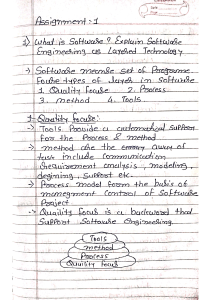 Assignment: 1
1) what is Software? Explain Software
Engineering as Layered Technology
→ Software means set of Programe
Four types of layer in software
1. Quality focus 2. Process
3. method 4. Tools
1. Quality focus:
→ Tools Provide a automatical support
for the Process & method
→ method are the away of
task include communication
requirement analysis, modeling,
degining, support etc.
→ Process model form the basis of
management control of software
Project
→ Quality focus is a backword that
Support Software Engineering.
Tools
method
Process
Quality focus